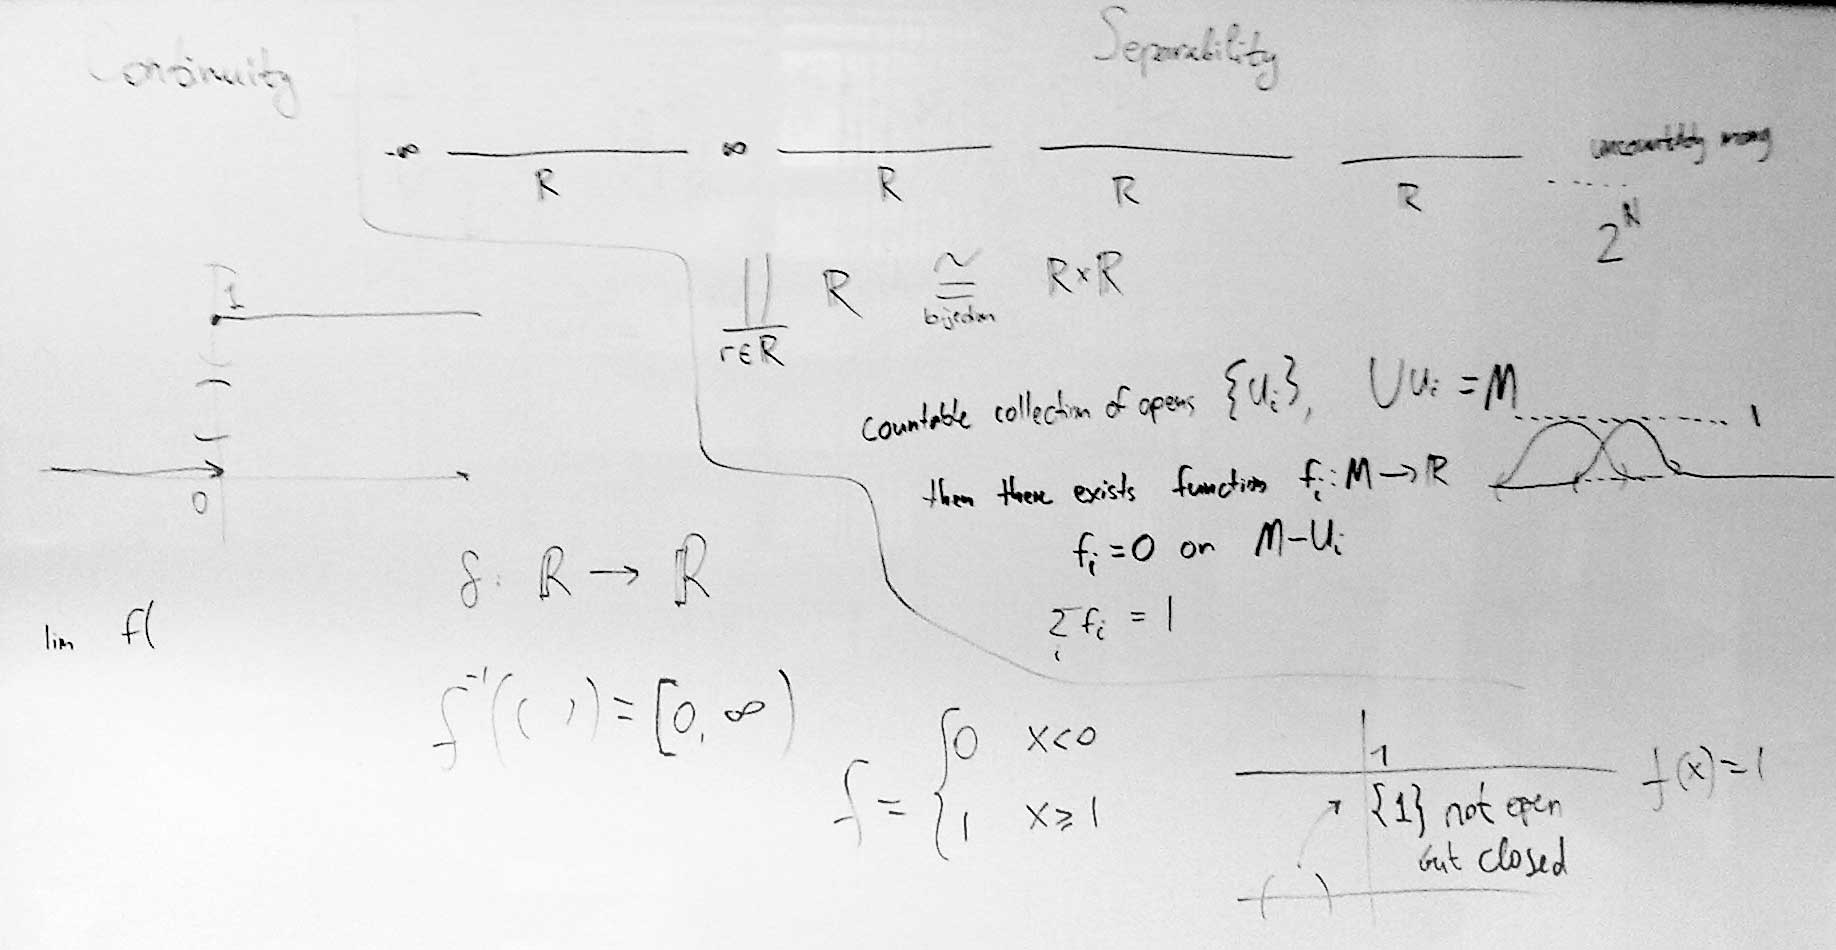 Continuity
Separability
-∞ ∞ uncountably many
R R R R
2^N
∐ R ≅ R×R
bijection
r∈R
1
countable collection of opens {U_i}, ⋃U_i = M
1
then there exists function f_i: M → R
0
f_i = 0 on M-U_i
f: R → R
Σ f_i = 1
i
lim f(
f^{-1}(( )) = [0, ∞)
f = {0 x<0
1 x≥1
1
f(x)=1
{1} not open
but closed